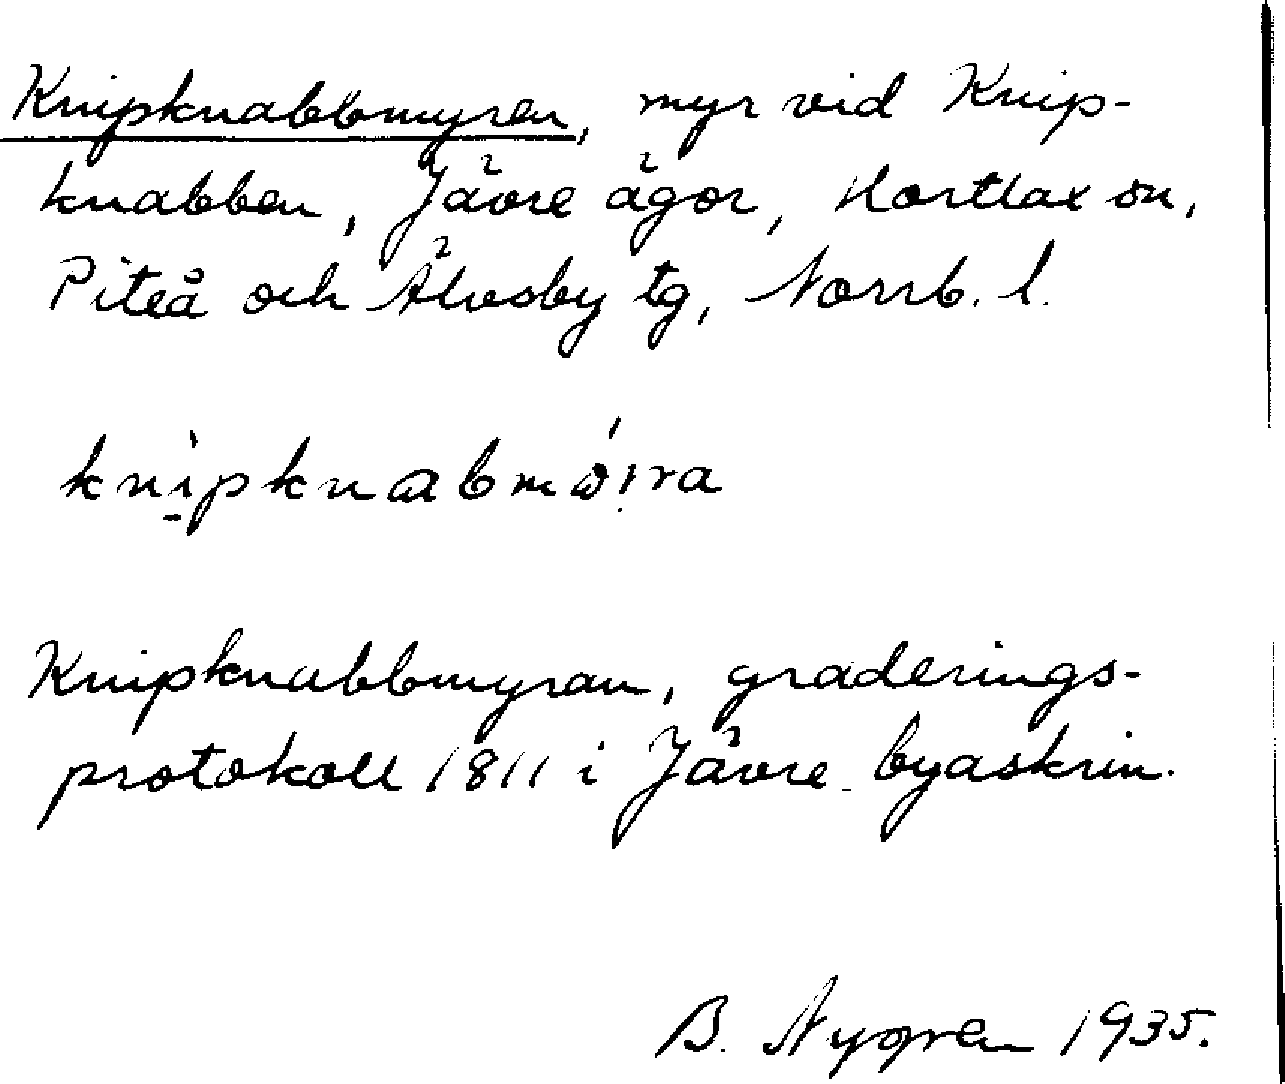 Knipknabbmyren, myr vid Knip-
knabben, Jävre ägor, Hortlax sn,
Piteå och Älvsby tg, Norrb. l.
knipknabmöira
Knipknabbmyran, graderings-
protokoll 1811 i Jävre byaskrin.
B. Nygren 1935.